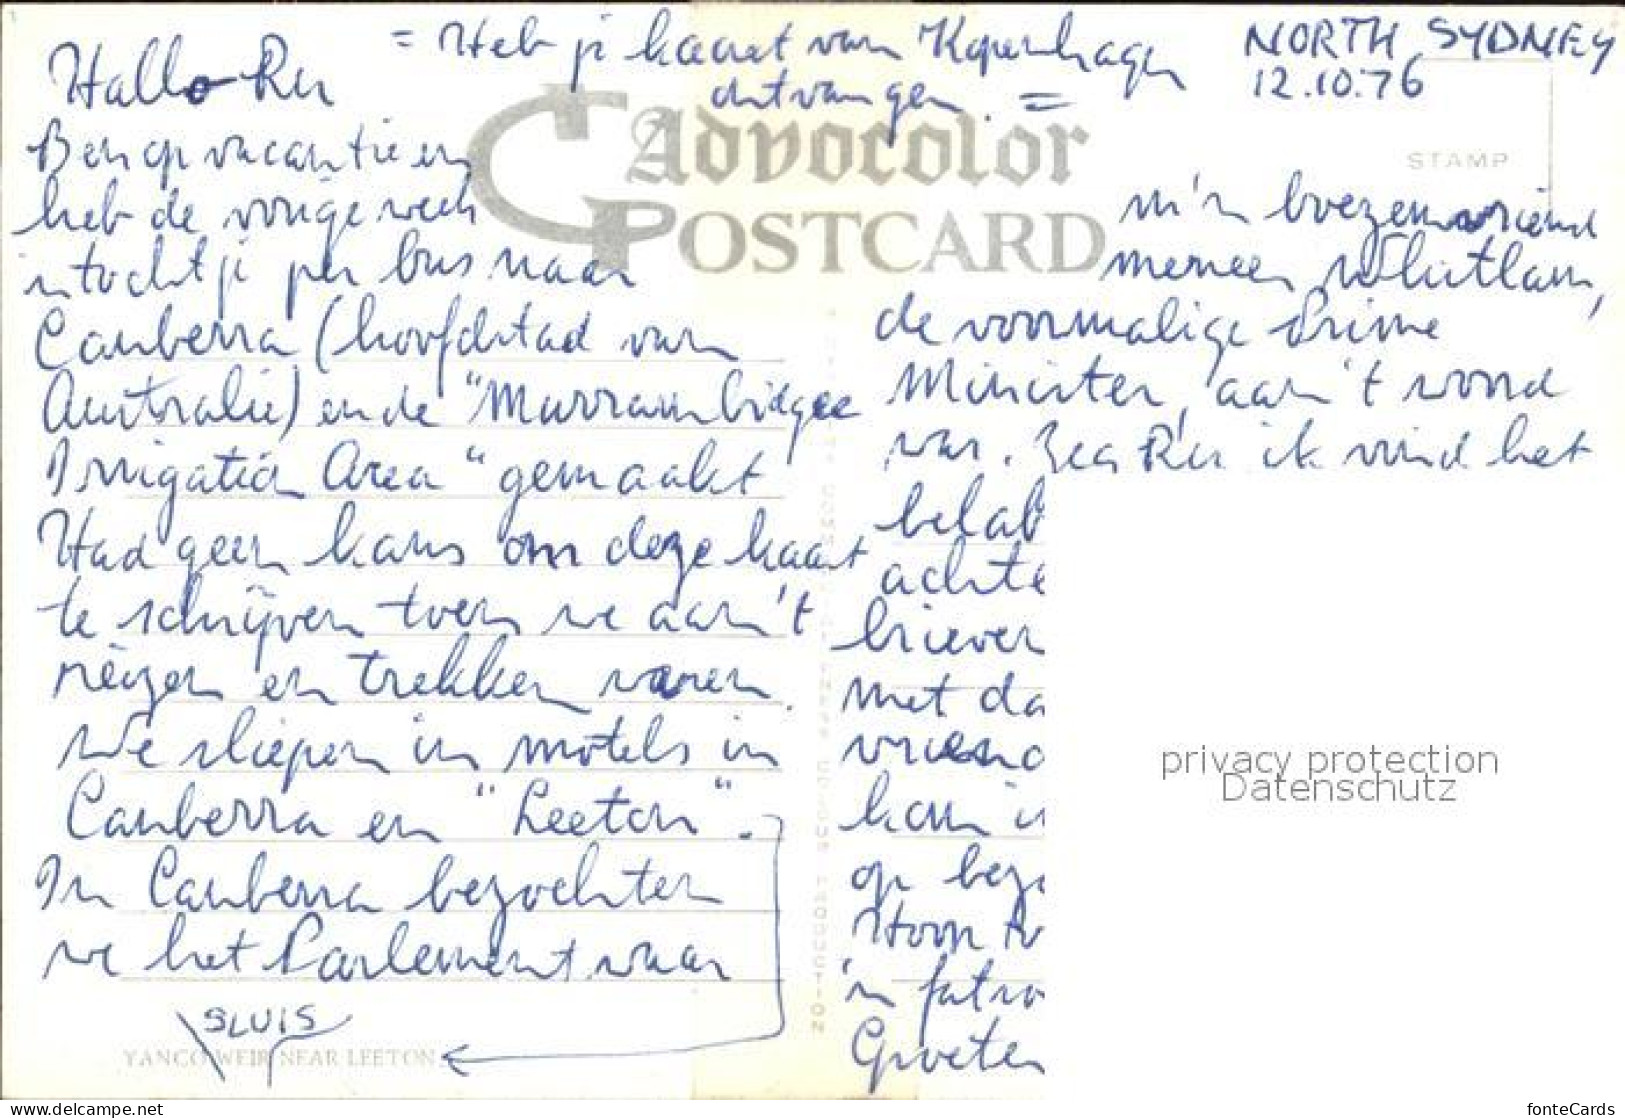 NORTH SYDNEY
12.10.76
= Heb je kaart van Kopenhagen
ontvangen. =
Hallo
Ben op vacantie en
heb de vorige week
'n tochtje per bus naar
Canberra (hoofdstad van
Australië) en de "Murrumbidgee
Irrigation Area" gemaakt
Had geen kans om deze kaart
te schrijven toen we aan 't
reizen en trekken waren.
We sliepen in motels in
Canberra en "Leeton".
In Canberra bezochten
we het Parlement waar
SLUIS
YANCO WEIR NEAR LEETON
Advocolor
POSTCARD
STAMP
m'n boezemvriend
meneer Whitlam,
de voormalige Prime
Minister, aan 't woord
was. Zeg ik vind het
belab
achte
brieven
met da
vriend
kom i
op bez
Hoop
'n
Groeten
privacy protection
Datenschutz
www.delcampe.net
fonteCards